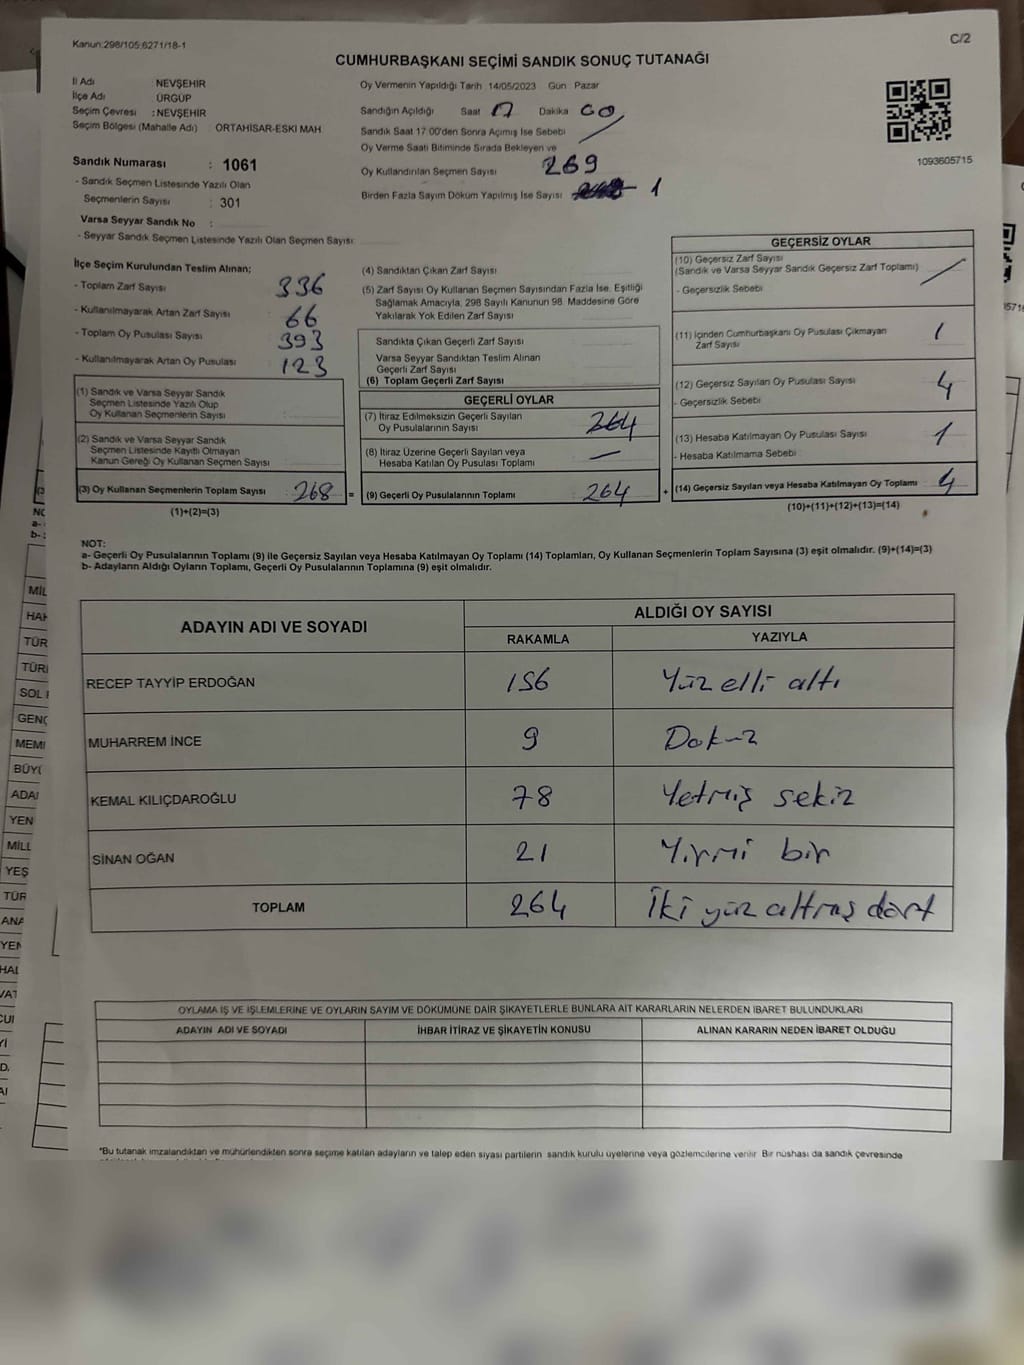 Kanun:298/105;6271/18-1
C/2
CUMHURBAŞKANI SEÇİMİ SANDIK SONUÇ TUTANAĞI
İl Adı NEVŞEHİR
İlçe Adı ÜRGÜP
Seçim Çevresi : NEVŞEHİR
Seçim Bölgesi (Mahalle Adı) ORTAHİSAR-ESKI MAH
Sandık Numarası : 1061
- Sandık Seçmen Listesinde Yazılı Olan
Seçmenlerin Sayısı : 301
Varsa Seyyar Sandık No :
- Seyyar Sandık Seçmen Listesinde Yazılı Olan Seçmen Sayısı:
Oy Vermenin Yapıldığı Tarih :14/05/2023 Gün : Pazar
Sandığın Açıldığı Saat 17 Dakika 00
Sandık Saat 17:00'den Sonra Açımış İse Sebebi
Oy Verme Saati Bitiminde Sırada Bekleyen ve
Oy Kullandırılan Seçmen Sayısı 269
Birden Fazla Sayım Döküm Yapılmış İse Sayısı 1
1093605715
İlçe Seçim Kurulundan Teslim Alınan;
- Toplam Zarf Sayısı 336
- Kullanılmayarak Artan Zarf Sayısı 66
- Toplam Oy Pusulası Sayısı 393
- Kullanılmayarak Artan Oy Pusulası 123
(1) Sandık ve Varsa Seyyar Sandık
Seçmen Listesinde Yazılı Olup
Oy Kullanan Seçmenlerin Sayısı :
(2) Sandık ve Varsa Seyyar Sandık
Seçmen Listesinde Kayıtlı Olmayan
Kanun Gereği Oy Kullanan Seçmen Sayısı
(3) Oy Kullanan Seçmenlerin Toplam Sayısı 268 =
(1)+(2)=(3)
(4) Sandıktan Çıkan Zarf Sayısı
(5) Zarf Sayısı Oy Kullanan Seçmen Sayısından Fazla İse, Eşitliği
Sağlamak Amacıyla, 298 Sayılı Kanunun 98. Maddesine Göre
Yakılarak Yok Edilen Zarf Sayısı
Sandıkta Çıkan Geçerli Zarf Sayısı
Varsa Seyyar Sandıktan Teslim Alınan
Geçerli Zarf Sayısı
(6) Toplam Geçerli Zarf Sayısı
GEÇERLİ OYLAR
(7) İtiraz Edilmeksizin Geçerli Sayılan
Oy Pusulalarının Sayısı 264
(8) İtiraz Üzerine Geçerli Sayılan veya
Hesaba Katılan Oy Pusulası Toplamı —
(9) Geçerli Oy Pusulalarının Toplamı 264 +
GEÇERSİZ OYLAR
(10) Geçersiz Zarf Sayısı
(Sandık ve Varsa Seyyar Sandık Geçersiz Zarf Toplamı)
- Geçersizlik Sebebi
(11) İçinden Cumhurbaşkanı Oy Pusulası Çıkmayan 1
Zarf Sayısı
(12) Geçersiz Sayılan Oy Pusulası Sayısı 4
- Geçersizlik Sebebi
(13) Hesaba Katılmayan Oy Pusulası Sayısı 1
- Hesaba Katılmama Sebebi
(14) Geçersiz Sayılan veya Hesaba Katılmayan Oy Toplamı 4
(10)+(11)+(12)+(13)=(14)
NOT:
a- Geçerli Oy Pusulalarının Toplamı (9) ile Geçersiz Sayılan veya Hesaba Katılmayan Oy Toplamı (14) Toplamları, Oy Kullanan Seçmenlerin Toplam Sayısına (3) eşit olmalıdır. (9)+(14)=(3)
b- Adayların Aldığı Oyların Toplamı, Geçerli Oy Pusulalarının Toplamına (9) eşit olmalıdır.
ADAYIN ADI VE SOYADI ALDIĞI OY SAYISI
RAKAMLA YAZIYLA
RECEP TAYYİP ERDOĞAN 156 Yüz elli altı
MUHARREM İNCE 9 Dokuz
KEMAL KILIÇDAROĞLU 78 Yetmiş sekiz
SİNAN OĞAN 21 Yirmi bir
TOPLAM 264 İki yüz altmış dört
OYLAMA İŞ VE İŞLEMLERİNE VE OYLARIN SAYIM VE DÖKÜMÜNE DAİR ŞİKAYETLERLE BUNLARA AİT KARARLARIN NELERDEN İBARET BULUNDUKLARI
ADAYIN ADI VE SOYADI İHBAR İTİRAZ VE ŞİKAYETİN KONUSU ALINAN KARARIN NEDEN İBARET OLDUĞU
*Bu tutanak imzalandıktan ve mühürlendikten sonra seçime katılan adayların ve talep eden siyasi partilerin sandık kurulu üyelerine veya gözlemcilerine verilir. Bir nüshası da sandık çevresinde